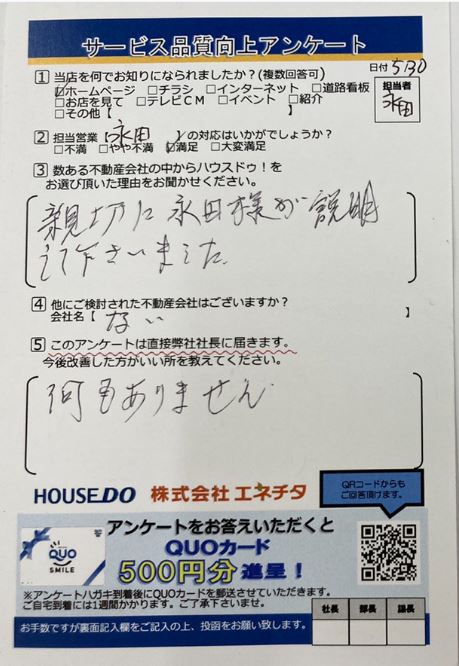 サービス品質向上アンケート
日付 5/30
1 当店を何でお知りになられましたか?(複数回答可)
☑ホームページ □チラシ □インターネット □道路看板
□お店を見て □テレビCM □イベント □紹介
□その他【 】
担当者
永田
2 担当営業【永田】の対応はいかがでしょうか?
□不満 □やや不満 ☑満足 □大変満足
3 数ある不動産会社の中からハウスドゥ!を
お選び頂いた理由をお聞かせください。
親切に永田様が説明
して下さいました
4 他にご検討された不動産会社はございますか?
会社名【 ない 】
5 このアンケートは直接弊社社長に届きます。
今後改善した方がいい所を教えてください。
何もありません
HOUSE DO 株式会社 エネチタ
QRコードからも
ご回答頂けます。
QUO
SMILE
アンケートをお答えいただくと
QUOカード
500円分 進呈!
※アンケートハガキ到着後にQUOカードを郵送させていただきます。
ご自宅到着には1週間かかります。ご了承下さいませ。
お手数ですが裏面記入欄をご記入の上、投函をお願い致します。
社長 部長 課長